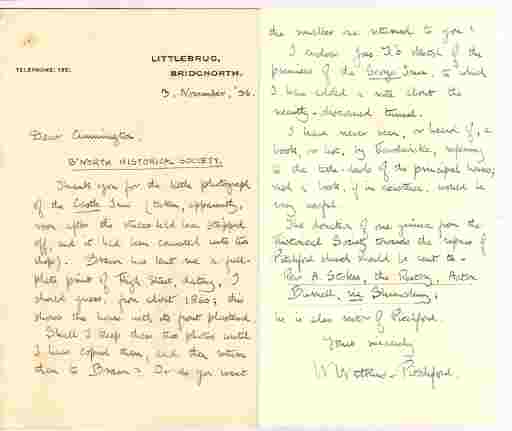 LITTLEBRUG,
TELEPHONE: 1951.
BRIDGNORTH.
3. November, '56.
Dear Cunnington,
B'NORTH HISTORICAL SOCIETY.
Thank you for the little photograph
of the Castle Inn (taken, apparently,
soon after the had been stripped
off, and it had been converted into two
shops). Brown has lent me a full-
plate print of High Street, dating, I
should guess, from about 1860; this
shows the house with its front plastered.
Shall I keep these two photos until
I have copied them, and then return
them to Brown? Or do you want
the smaller one returned to you?
I enclose sketch of the
premises of the George Inn, to which
I have added a note about the
recently-discovered tunnel.
I have never seen, or heard of, a
book, or list, by referring
to the of the principal houses;
such a book, if in existence, would be
very useful.
The donation of one guinea from the
Historical Society towards the repairs of
Pitchford church should be sent to -
Rev. A. Stokes, the Rectory, Acton
Burnell, via Shrewsbury;
he is also rector of Pitchford.
Yours sincerely
W Watkins-Pitchford.